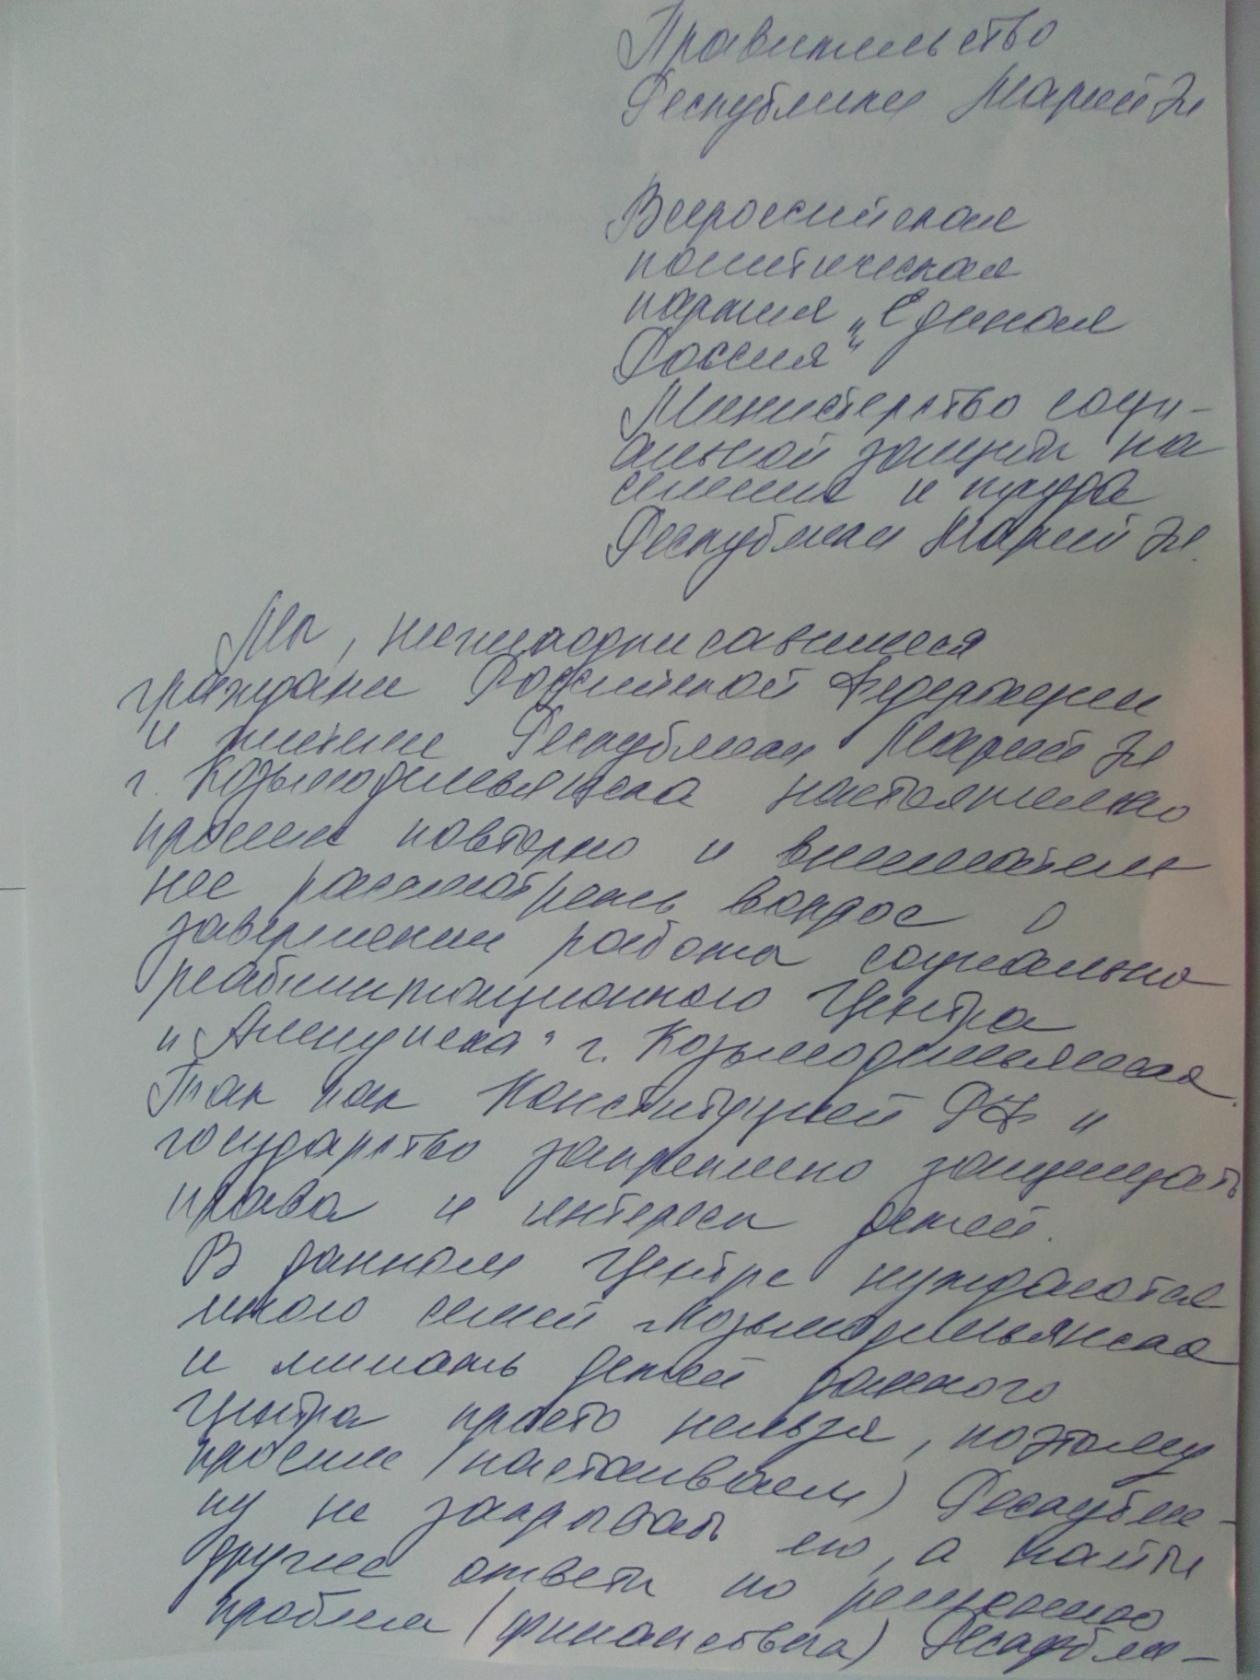 Правительство
Республики Марий Эл
Всероссийская
политическая
партия "Единая
Россия"
Министерство соци-
альной защиты на
селения и труда
Республики Марий Эл.
Мы, нижеподписавшиеся
граждане Российской Федерации
и жители Республики Марий Эл
г. Козьмодемьянска настоятельно
просим повторно и внимательн
нее рассмотреть вопрос о
завершении работы социально
реабилитационного Центра
"Аленушка" г. Козьмодемьянска.
Так как Конституцией РФ и
государство закреплено защищать
права и интересы детей.
В данном Центре нуждаются
много семей Козьмодемьянска
и лишать детей данного
Центра просто нельзя, поэтому
просим (настаиваем) Республи-
ку не закрывать его, а найти
другие ответы по решению
проблем (финансовых)